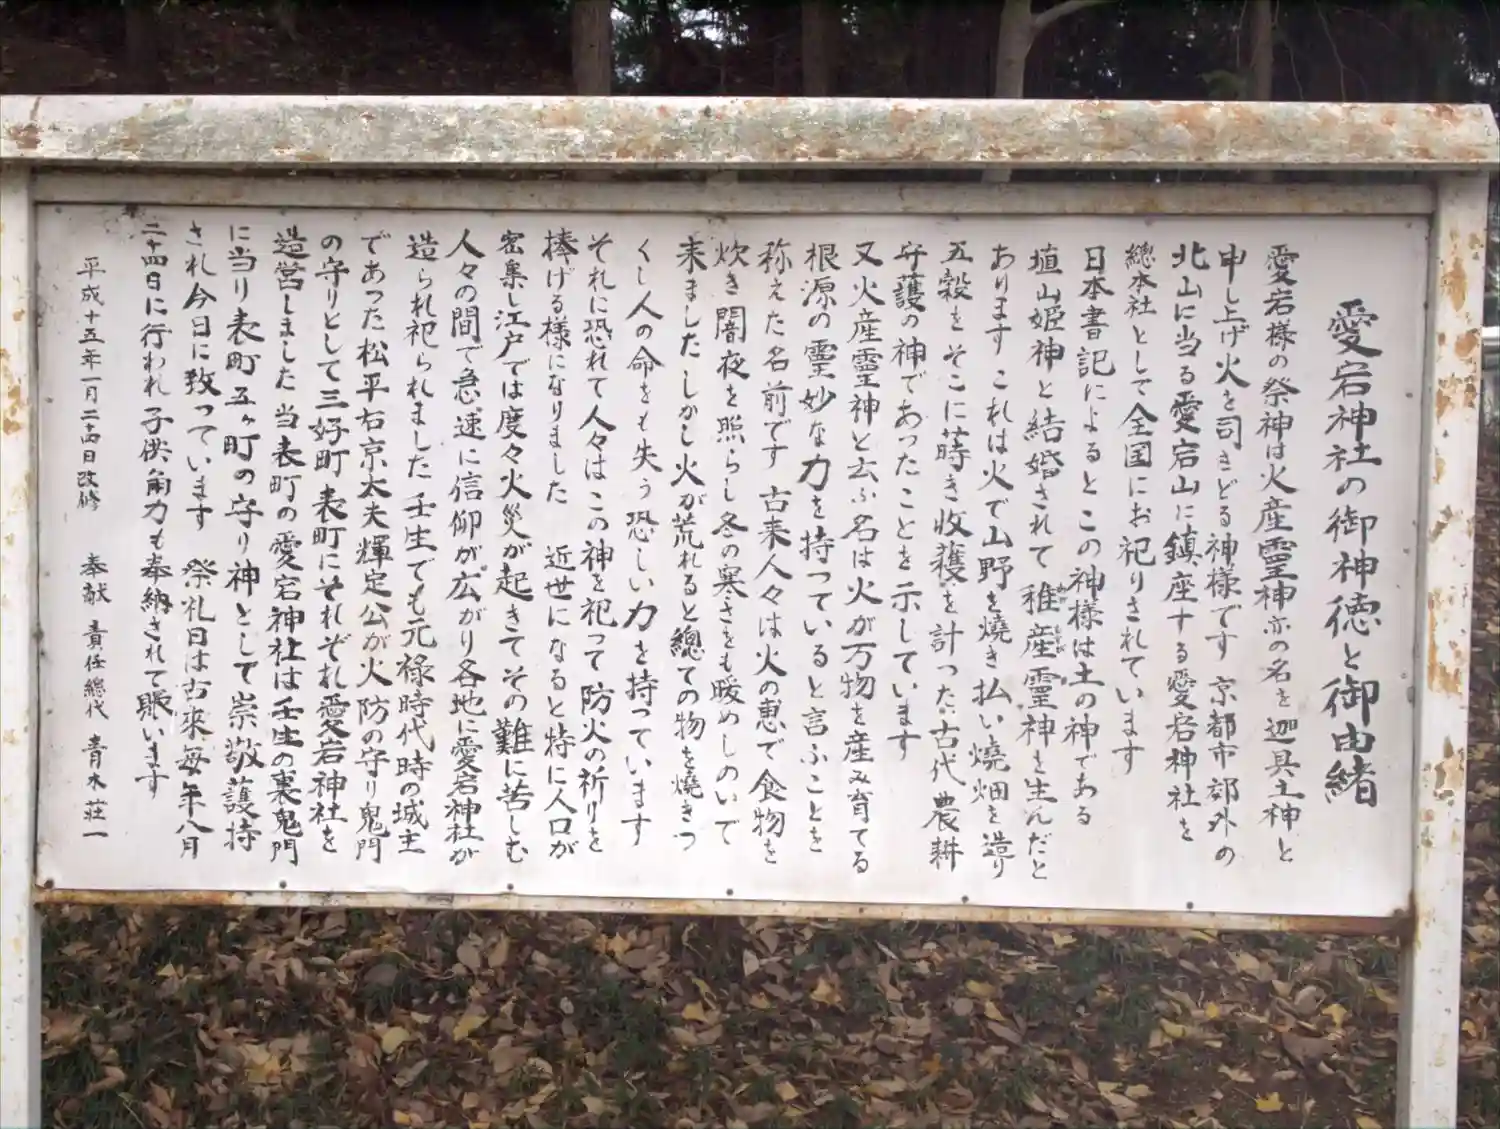 愛宕神社の御神徳と御由緒
愛宕様の祭神は火産霊神亦の名を迦具土神と
申し上げ火を司さどる神様です 京都市郊外の
北山に当る愛宕山に鎮座する愛宕神社を
總本社として全国にお祀りされています
日本書記によるとこの神様は土の神である
埴山姫神と結婚されて 稚産霊神を生んだと
あります これは火で山野を燒き払い燒畑を造り
五穀をそこに蒔き収穫を計った 古代 農耕
守護の神であったことを示しています
又火産霊神と云ふ名は火が万物を産み育てる
根源の霊妙な力を持っていると言ふことを
称えた名前です 古来人々は火の恵で食物を
炊き 闇夜を照らし冬の寒さをも暖めしのいで
来ました しかし火が荒れると總ての物を燒きつ
くし人の命をも失う恐しい力を持っています
それに恐れて人々はこの神を祀って防火の祈りを
捧げる様になりました 近世になると特に人口が
密集し江戸では度々火災が起きて その難に苦しむ
人々の間で急速に信仰が広がり各地に愛宕神社が
造られ祀られました 壬生でも元禄時代時の城主
であった松平右京太夫輝定公が火防の守り鬼門
の守りとして三好町 表町にそれぞれ愛宕神社を
造営しました 当表町の愛宕神社は壬生の裏鬼門
に当り表町五ヶ町の守り神として崇敬護持
され今日に致っています 祭礼日は古来毎年八月
二十四日に行われ子供角力も奉納されて賑います
平成十五年一月二十四日改修 奉献 責任總代 青木 荘一